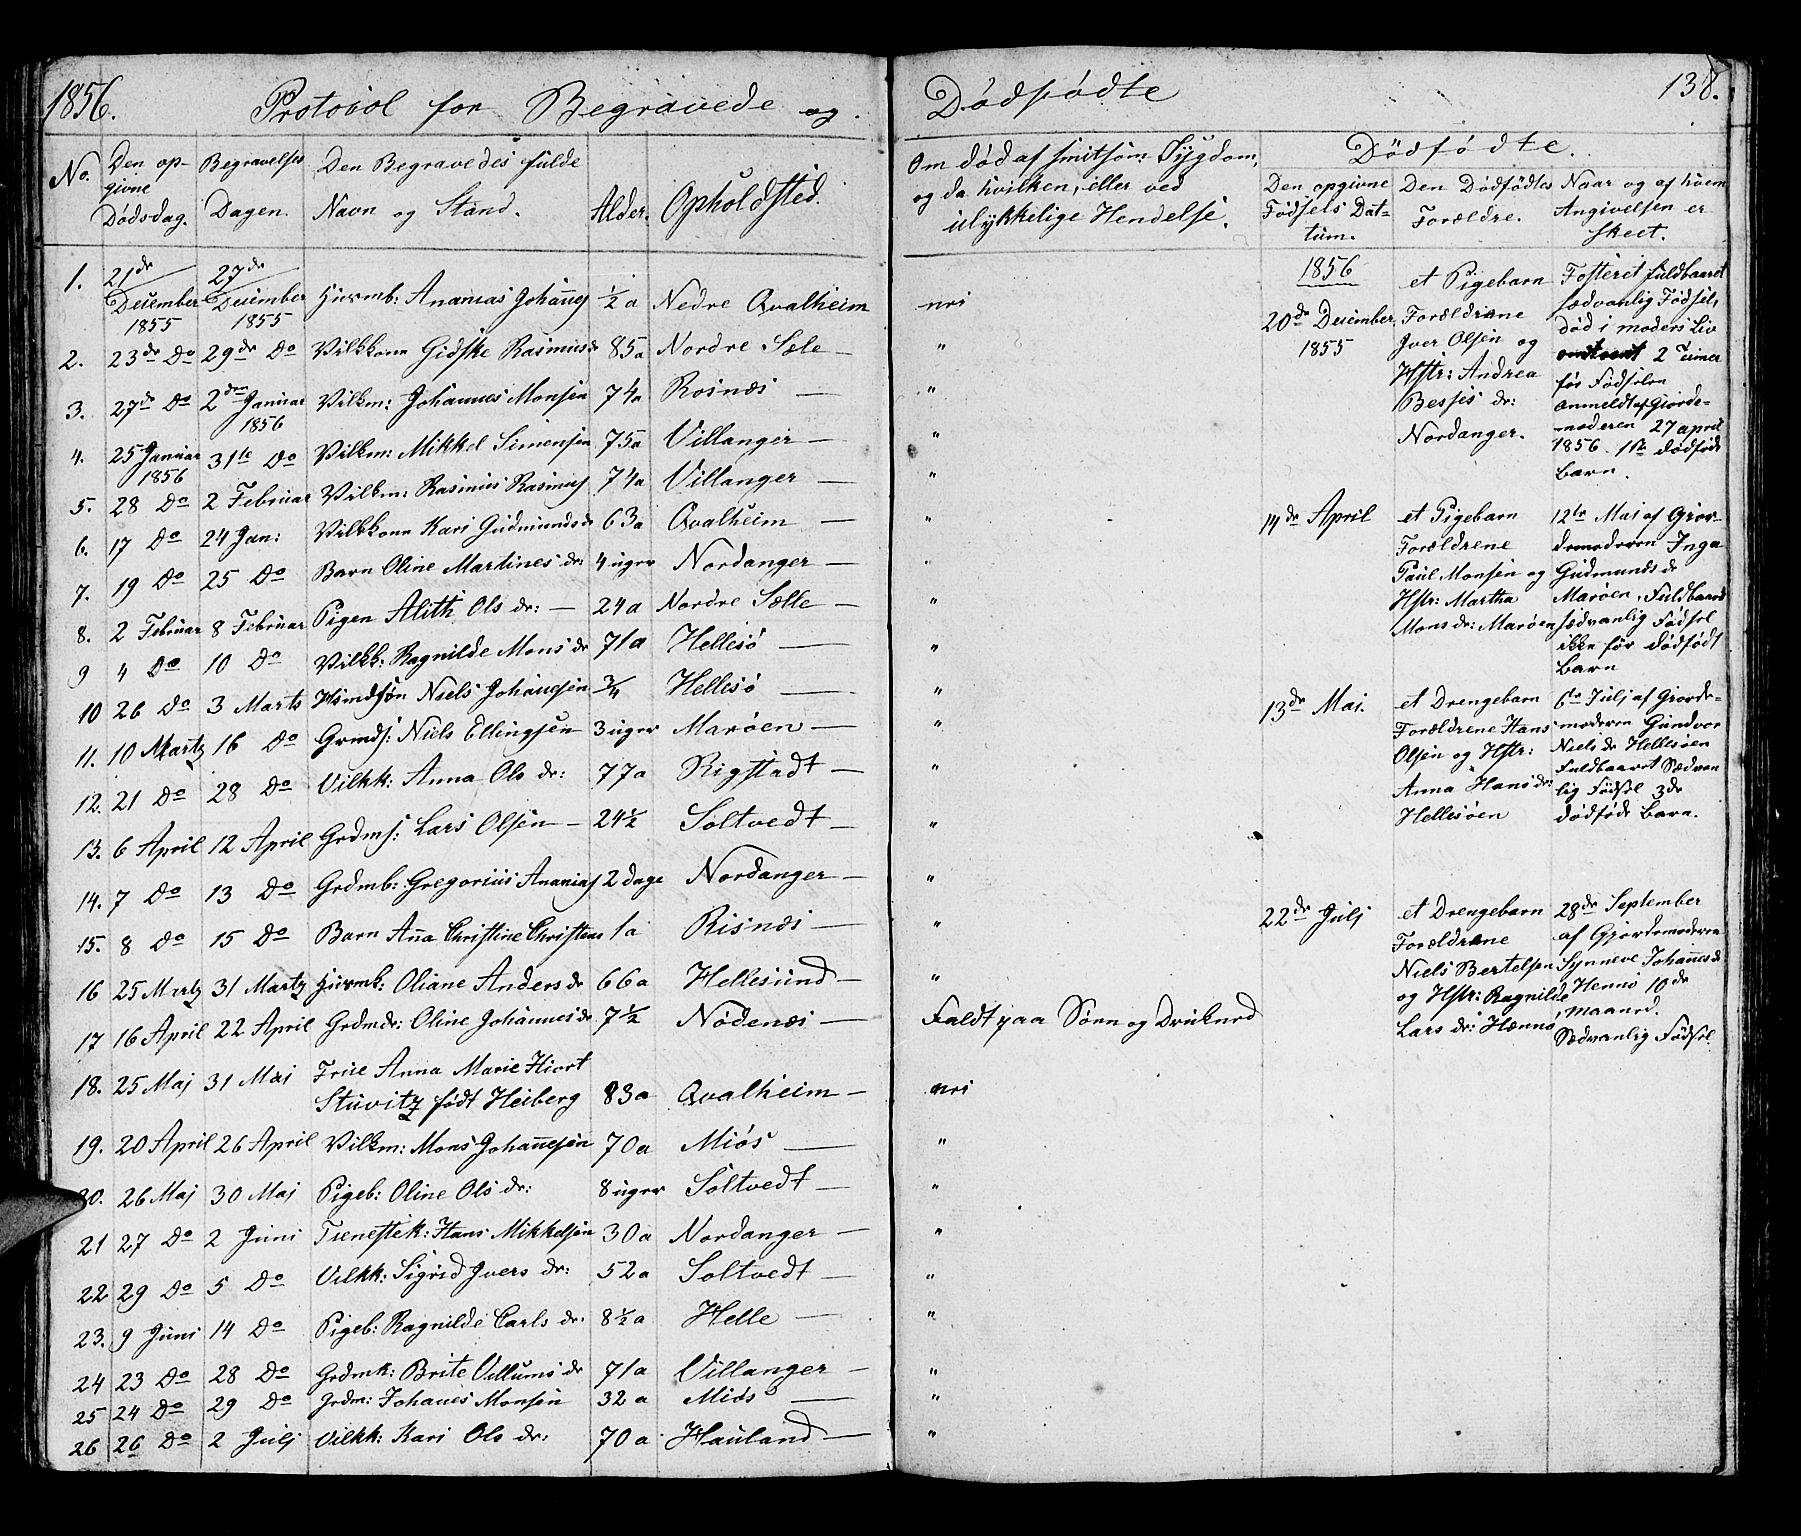 1856. Protocol for Begravede og Dødfødte 138.
No. Den op- givne Dødsdag. Begravelses Dagen. Den Begravedes fulde Navn og Stand. Alder. Opholdsted. Om død af smitsom: Sygdom, og da hvilken, eller ved ulykkelige Hendelse.
1. 21de December 1855 27de December 1855 Huusmb: Ananias Johannes ½ a Nedre Qvalheim nei
2. 23de Do 29de Do Vilkkone Gidske Rasmusdr 85a Nordre Sæle — "
3. 27de Do 2den Januar 1856 Vilkm: Johannes Monsen 74a Rosnæs — "
4. 25 Januar 1856 31te Do Vilkm: Mikkel Simensen 75a Villanger — "
5. 28 Do 2 Februar Vilkm: Rasmus Rasmuss 74a Villanger — "
6. 17 Do 24 Jan: Vilkkone Kari Gudmundsdr 63a Qvalheim — "
7. 19 Do 25 Do Barn Oline Martines dr: 4 uger Nordanger — "
8. 2 Februar 8 Februar Pigen Alith Ols dr: — 24a Nordre Sælle — "
9 4 Do 10 Do Vilkk: Ragnilde Mons dr 71a Hellesö — "
10 26 Do 3 Marts Hsmdsøn Niels Johannesen ¾ Hellesö — "
11. 10 Martz 16 Do Grmds: Niels Ellingsen 3 uger Marøen — "
12. 21 Do 28 Do Vilkk: Anna Ols dr: 77a Rigstadt — "
13. 6 April 12 April Grdms: Lars Olsen — 24½ Soltvedt — "
14. 7 Do 13 Do Grdmb: Gregorius Ananias 2 dage Nordanger — "
15. 8 Do 15 Do Barn Anna Christine Christens 1a Risnæs — "
16 25 Martz 31 Martz Huusmk: Oliane Anders dr 66a Hellesund — "
17 16 April 22 April Grdmdr: Oline Johannesdr 7½ Nødenæs — Faldt paa Søen og Drukned
18. 25 Maj 31 Mai Frue Anna Marie Hiort
Stuvitz født Heiberg 83a Qvalheim — nei
19. 20 April 26 April Vilkm: Mons Johannesen 70a Miös — "
20. 26 Maj 30 Maj Pigeb: Oline Ols dr: 8 uger Soltvedt — "
21 27 Do 2 Juni Tienestek: Hans Mikkelsen 30a Nordanger — "
22 29 Do 5 Do Vilkk: Sigrid Jvers dr: 52a Soltvedt — "
23. 9 Juni 14 Do Pigeb: Ragnilde Carls dr. 8½a Helle — "
24 23 Do 28 Do Grdmk: Brite Villums dr 71a Villanger — "
25 24 Do 29 Do Grdm: Johanes Monsen 32 a Miös — "
26 26 Do 2 Julj Vilkk: Kari Ols dr: 70a Hauland — "
Dödfödte.
Den opgivne Fødsels Da- tum. Den Dödfödtes Forældre. Naar og af hvem Angivelsen er skeet.
1856
20de December 1855
et Pigebarn
Forældrene
Jver Olsen og
Hstr: Andrea
Besses dr:
Nordanger.
Fosteret fuldbaaret
sædvanlig Fødsel,
død i moders Liv
2 Timer
før Fødselen
anmeldt af Giorde-
moderen 27 april
1856. 1te dødføde
barn.
14de April
et Pigebarn
Forældrene
Paul Monsen og
Hstr: Martha
Mons dr: Marøen
12te Mai af Gjor-
demoderen Inga
Gudmunds dr
Marøen, Fuldbaard
sædvanlig Fødsel
ikke før dødfødt
barn
13de Mai.
et Drengebarn
Forældrene Hans
Olsen og Hstr:
Anna Hans dr:
Hellesøen
6te Julj af Giorde-
moderen Gundvor
Niels dr Hellesøen
Fuldbaaret Sædvan
lig Fødsel 3de
dødføde barn.
22de Julj
et Drengebarn
Forældrene
Niels Bertelsen
og Hstr: Ragnilde
Lars dr: Hænnø
28de September
af Gjordemoderen
Synneve Johannesdr
Hennø 10de
maaned.
Sædvanlig Fødsel